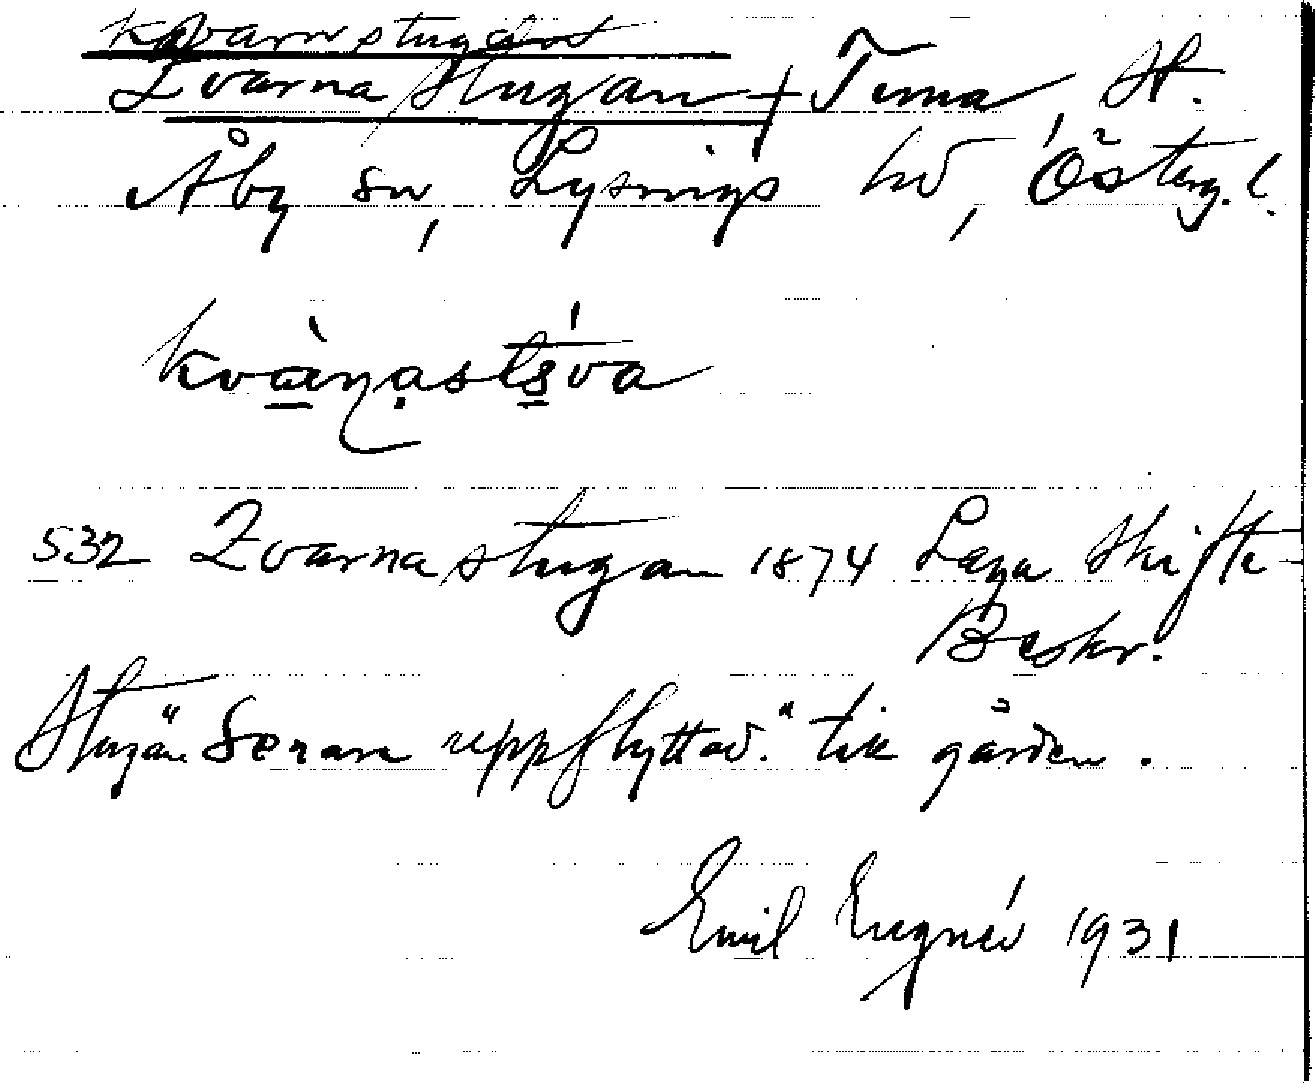 Kvarnstugan
Qvarnastugan + Tema, St.
Åby sn, Lysings hd, Österg. l.
532 Qvarnastugan 1874 Laga Skifte
Beskr.
Stugan "senare uppflyttad" till gården.
Emil 1931